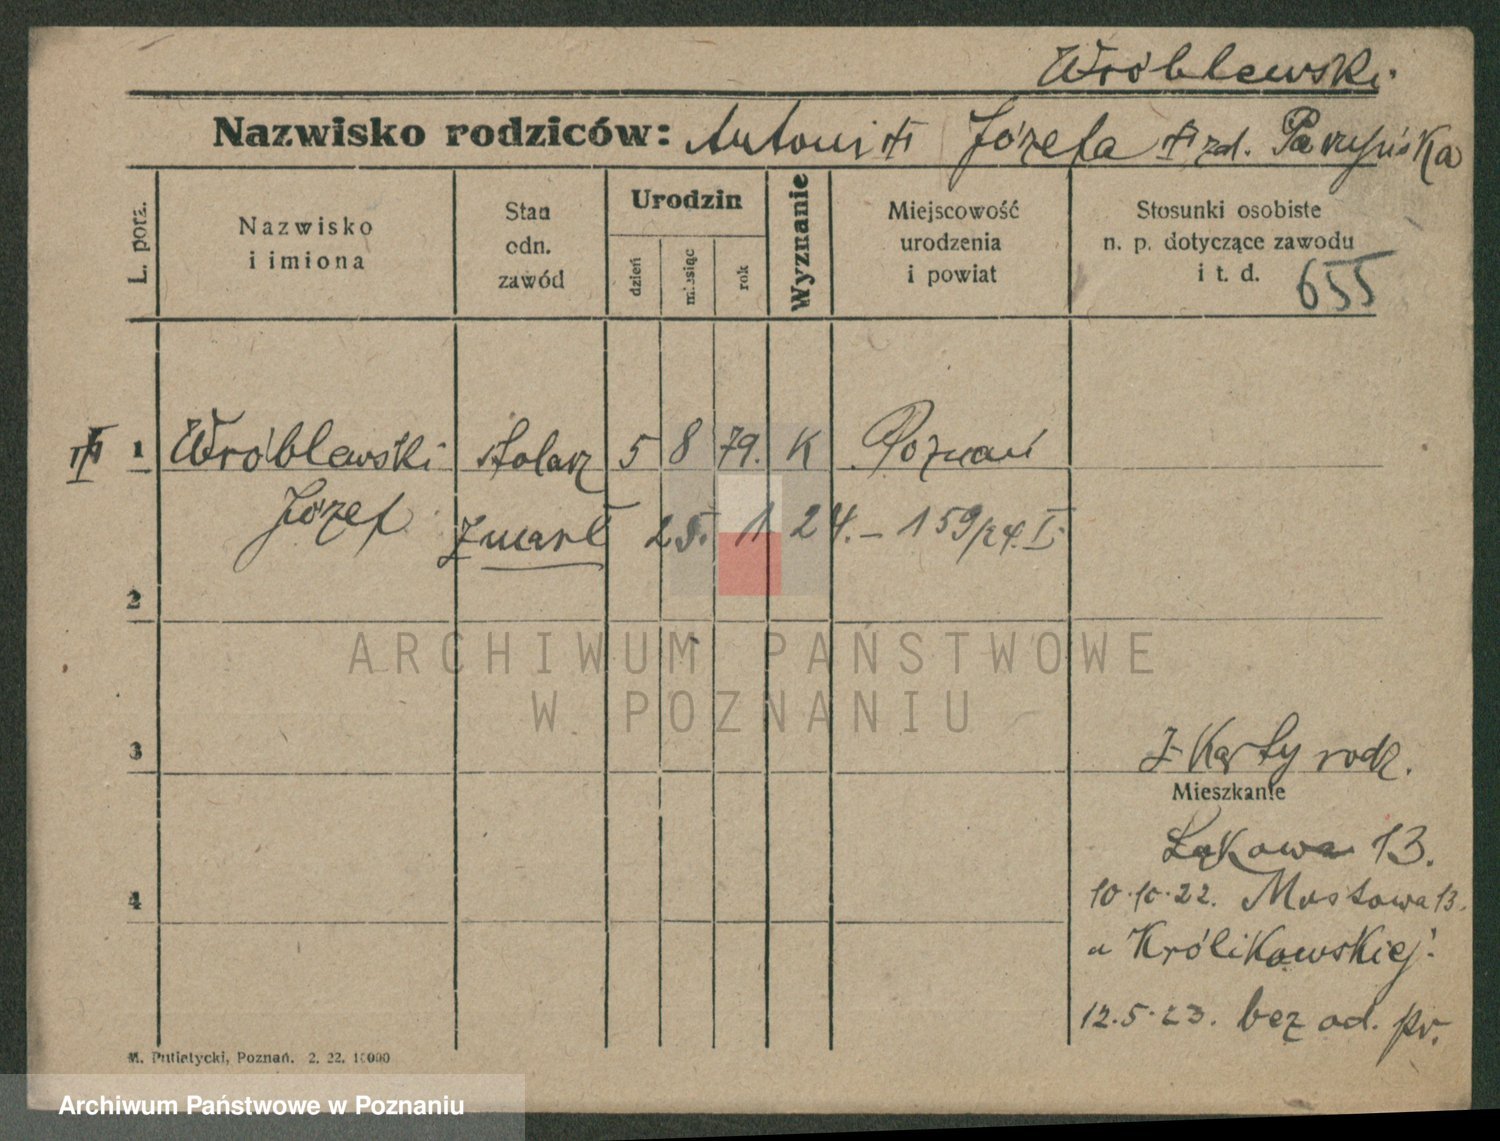 Wróblewski.
Nazwisko rodziców: Antoni Józefa zd. Parzyńska
L. porz.
Nazwisko i imiona
Stan odn. zawód
Urodzin
dzień
miesiąc
rok
Wyznanie
Miejscowość urodzenia i powiat
Stosunki osobiste n. p. dotyczące zawodu i t. d.
655
1 Wróblewski stolarz 5 8 79. K Poznań
Józef Zmarł 25. 1 24. – 159/24. I.
2
3
Z Karty rodz.
Mieszkanie
Łąkowa 13.
4
10.10.22. Mostowa 13.
u Królikowskiej.
12.5.23. bez od. pr.
M. Putiatycki, Poznań. 2. 22. 10000
ARCHIWUM PAŃSTWOWE
W POZNANIU
Archiwum Państwowe w Poznaniu